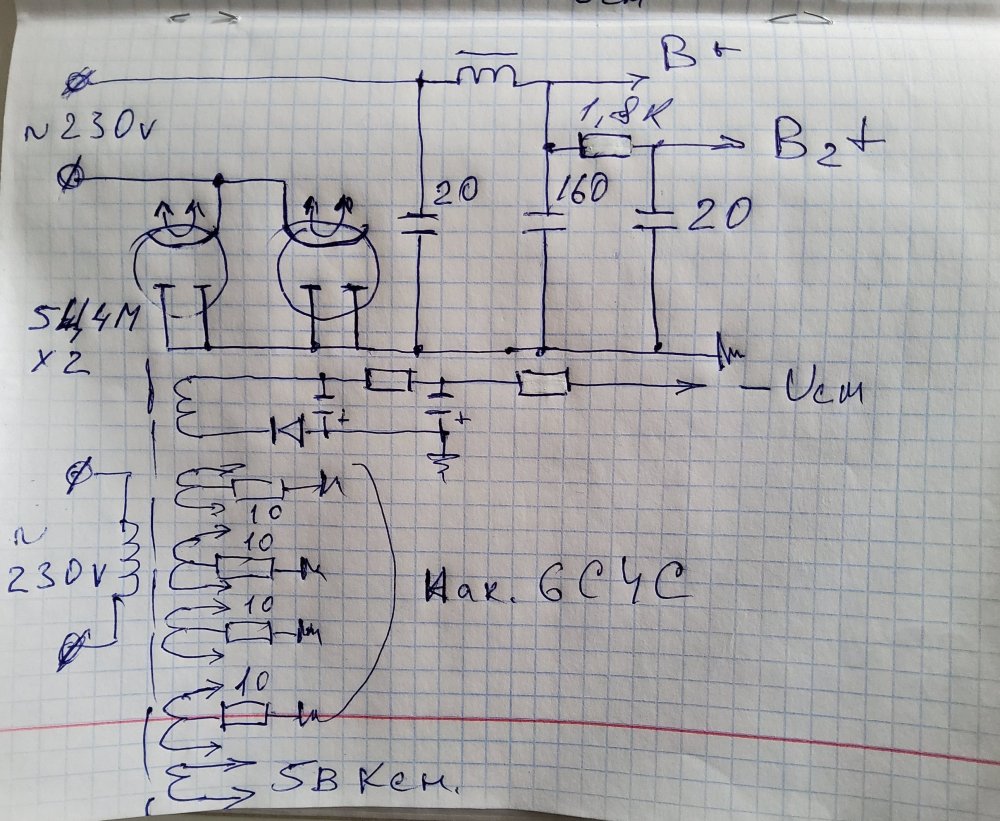 B+
~230v
1,8К
B2+
20
160
20
5Ц4М
x2
- Uсм
+
+
10
10
~
230v
Нак. 6С4С
10
10
5В Ксн.